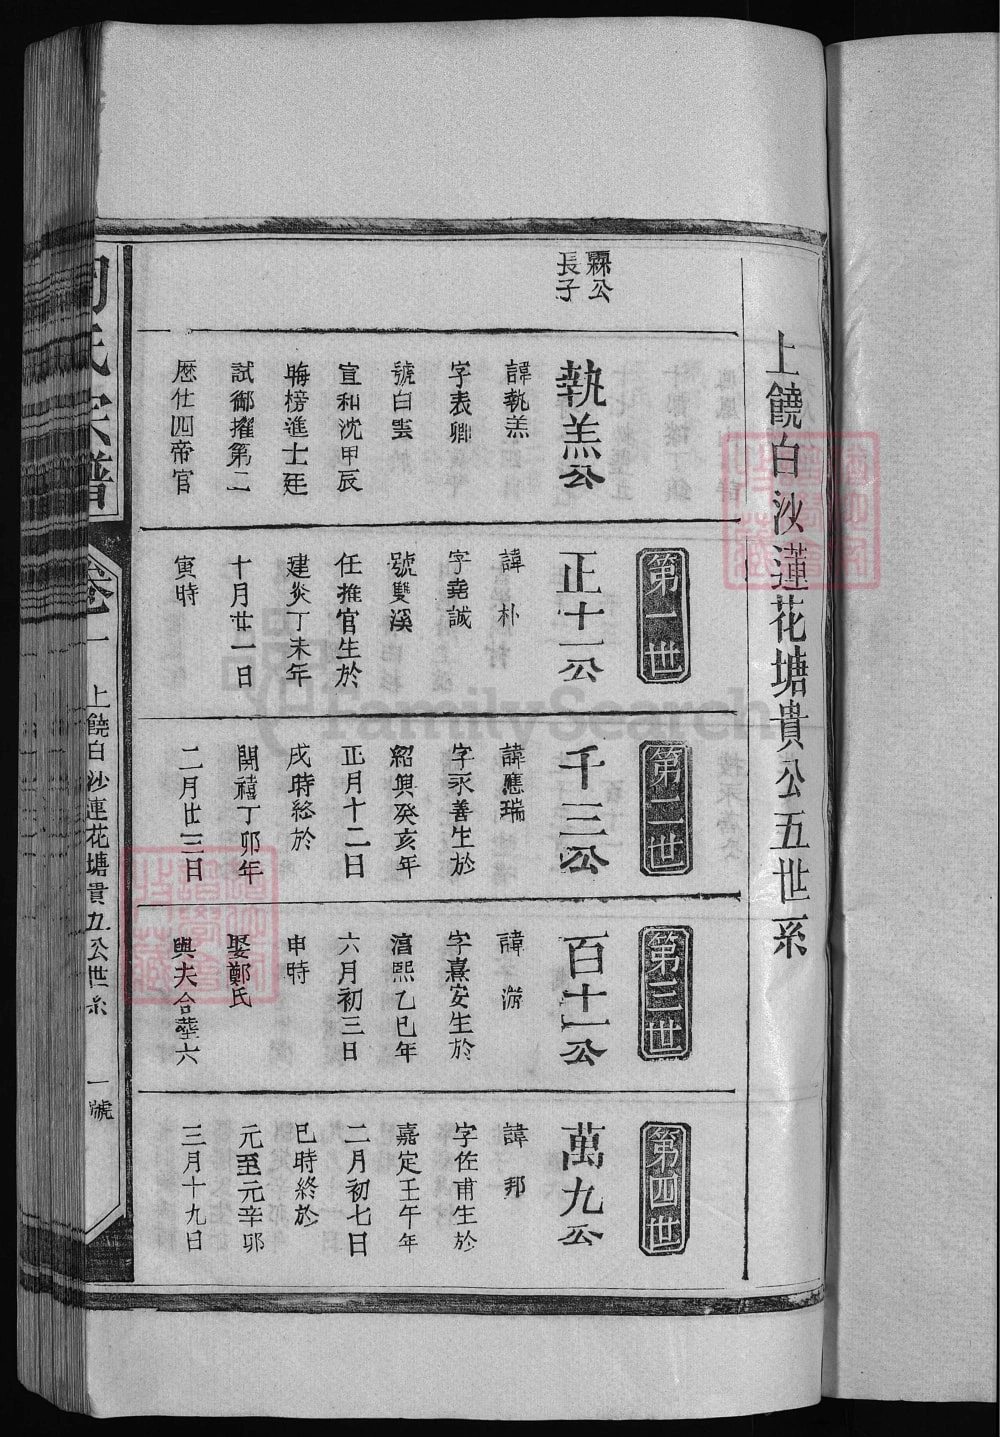 上饒白沙蓮花塘貴公五世系
霖公
長子
執羔公
諱執羔
字表卿
號白雲
宣和沈甲辰
晦榜進士廷
試御擢第二
歷仕四帝官
第一世
正十一公
諱朴
字堯誠
號雙溪
任推官生於
建炎丁未年
十月廿一日
寅時
第二世
千三公
諱應瑞
字永善生於
紹興癸亥年
正月十二日
戌時終於
開禧丁卯年
二月廿三日
第三世
百十一公
諱游
字熹安生於
淳熙乙巳年
六月初三日
申時
娶鄭氏
與夫合塟六
第四世
萬九公
諱邦
字佐甫生於
嘉定壬午年
二月初七日
巳時終於
元至元辛卯
三月十九日
氏宗譜
卷一
上饒白沙連花塘貴五公世系
一號
FamilySearch